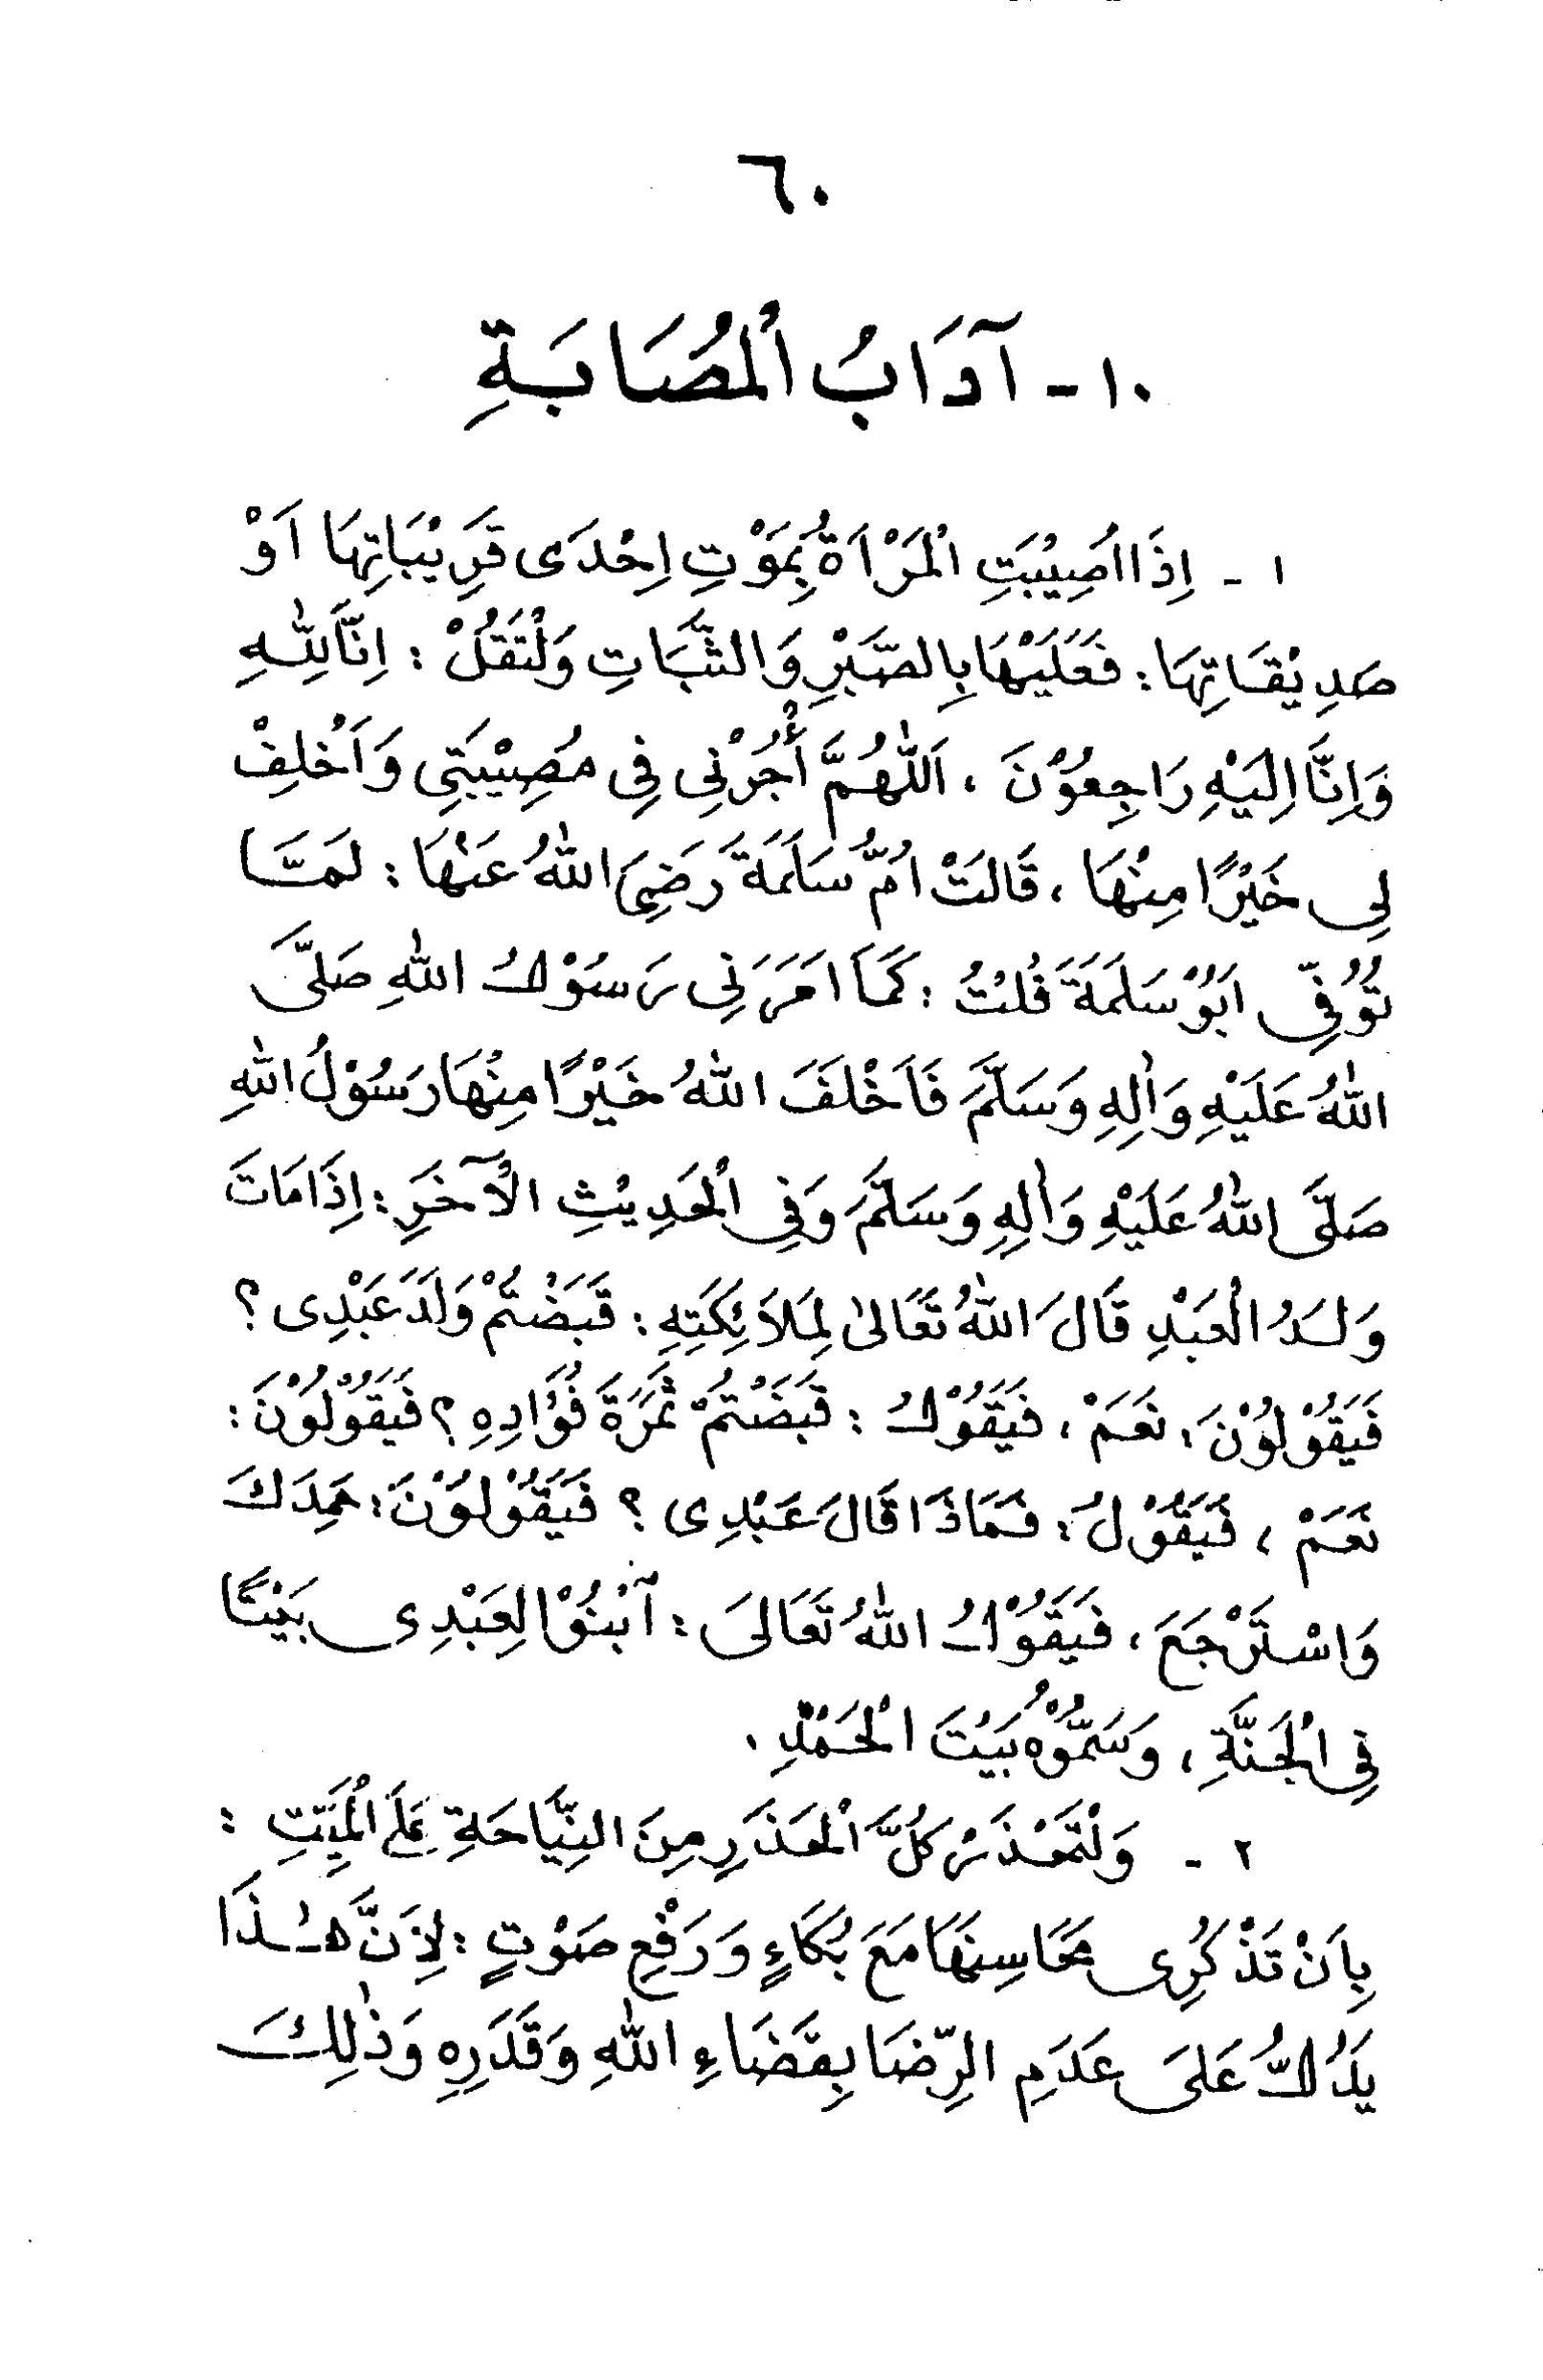 ٦٠
١٠ - آدَابُ الْمُصَابَةِ
١ - اِذَا اُصِيْبَتِ الْمَرْاَةُ بِمَوْتِ اِحْدَى قَرِيْبَاتِهَا اَوْ
صَدِيْقَاتِهَا : فَعَلَيْهَا بِالصَّبْرِ وَالثَّبَاتِ وَلْتَقُلْ : اِنَّا لِلّٰهِ
وَاِنَّا اِلَيْهِ رَاجِعُوْنَ ، اَللّٰهُمَّ أْجُرْنِى فِى مُصِيْبَتِى وَاَخْلِفْ
لِى خَيْرًا مِنْهَا ، قَالَتْ اُمُّ سَلَمَةَ رَضِىَ اللّٰهُ عَنْهَا : لَمَّا
تُوُفِّى اَبُوْ سَلَمَةَ قُلْتُ : كَمَا اَمَرَنِى رَسُوْلُ اللّٰهِ صَلَّى
اللّٰهُ عَلَيْهِ وَاٰلِهِ وَسَلَّمَ فَاَخْلَفَ اللّٰهُ خَيْرًا مِنْهَا رَسُوْلُ اللّٰهِ
صَلَّى اللّٰهُ عَلَيْهِ وَاٰلِهِ وَسَلَّمَ وَفِى الْحَدِيْثِ الْآخَرِ : اِذَا مَاتَ
وَلَدُ الْعَبْدِ قَالَ اللّٰهُ تَعَالىٰ لِمَلَائِكَتِهِ : قَبَضْتُمْ وَلَدَ عَبْدِى ؟
فَيَقُوْلُوْنَ : نَعَمْ ، فَيَقُوْلُ : قَبَضْتُمْ ثَمَرَةَ فُؤَادِهِ ؟ فَيَقُوْلُوْنَ :
نَعَمْ ، فَيَقُوْلُ : فَمَاذَا قَالَ عَبْدِى ؟ فَيَقُوْلُوْنَ : حَمِدَكَ
وَاسْتَرْجَعَ ، فَيَقُوْلُ اللّٰهُ تَعَالَى : آبْنُوْا لِعَبْدِى بَيْتًا
فِى الْجَنَّةِ ، وَسَمُّوْهُ بَيْتَ الْحَمْدِ .
٢ - وَلْتَحْذَرْ كُلَّ الْحَذَرِ مِنَ النِّيَاحَةِ عَلَى الْمَيِّتِ :
بِاَنْ تَذْكُرِى مَحَاسِنَهَا مَعَ بُكَاءٍ وَرَفْعِ صَوْتٍ : لِاَنَّ هٰذَا
يَدُلُّ عَلَى عَدَمِ الرِّضَا بِقَضَاءِ اللّٰهِ وَقَدَرِهِ وَذٰلِكَ